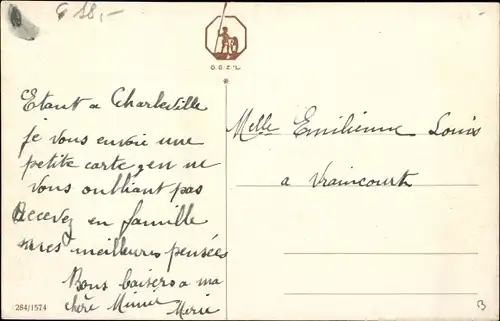 € 18,-
O.G.Z.-L.
Etant a Charleville
je vous envoie une
petite carte en ne
vous oubliant pas
Recevez en famille
mes meilleures pensées
Bons baisers a ma
chère Mimie
Marie
Melle Emilienne Louis
a Vraincourt
284/1574
B